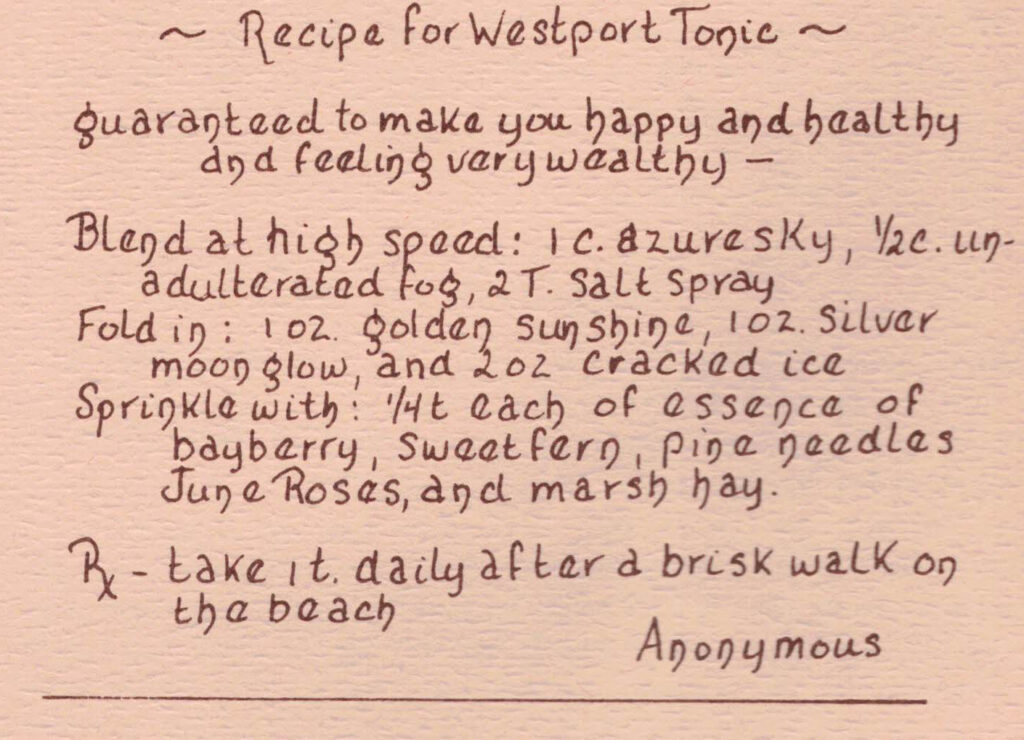 ~ Recipe for Westport Tonic ~
guaranteed to make you happy and healthy
and feeling very wealthy —
Blend at high speed: 1 c. azure sky, 1/2 c. un-
adulterated fog, 2 T. salt spray
Fold in: 1 oz. golden sunshine, 1 oz. silver
moon glow, and 2 oz cracked ice
Sprinkle with: 1/4 t each of essence of
bayberry, sweetfern, pine needles
June Roses, and marsh hay.
Rx - take 1 t. daily after a brisk walk on
the beach
Anonymous